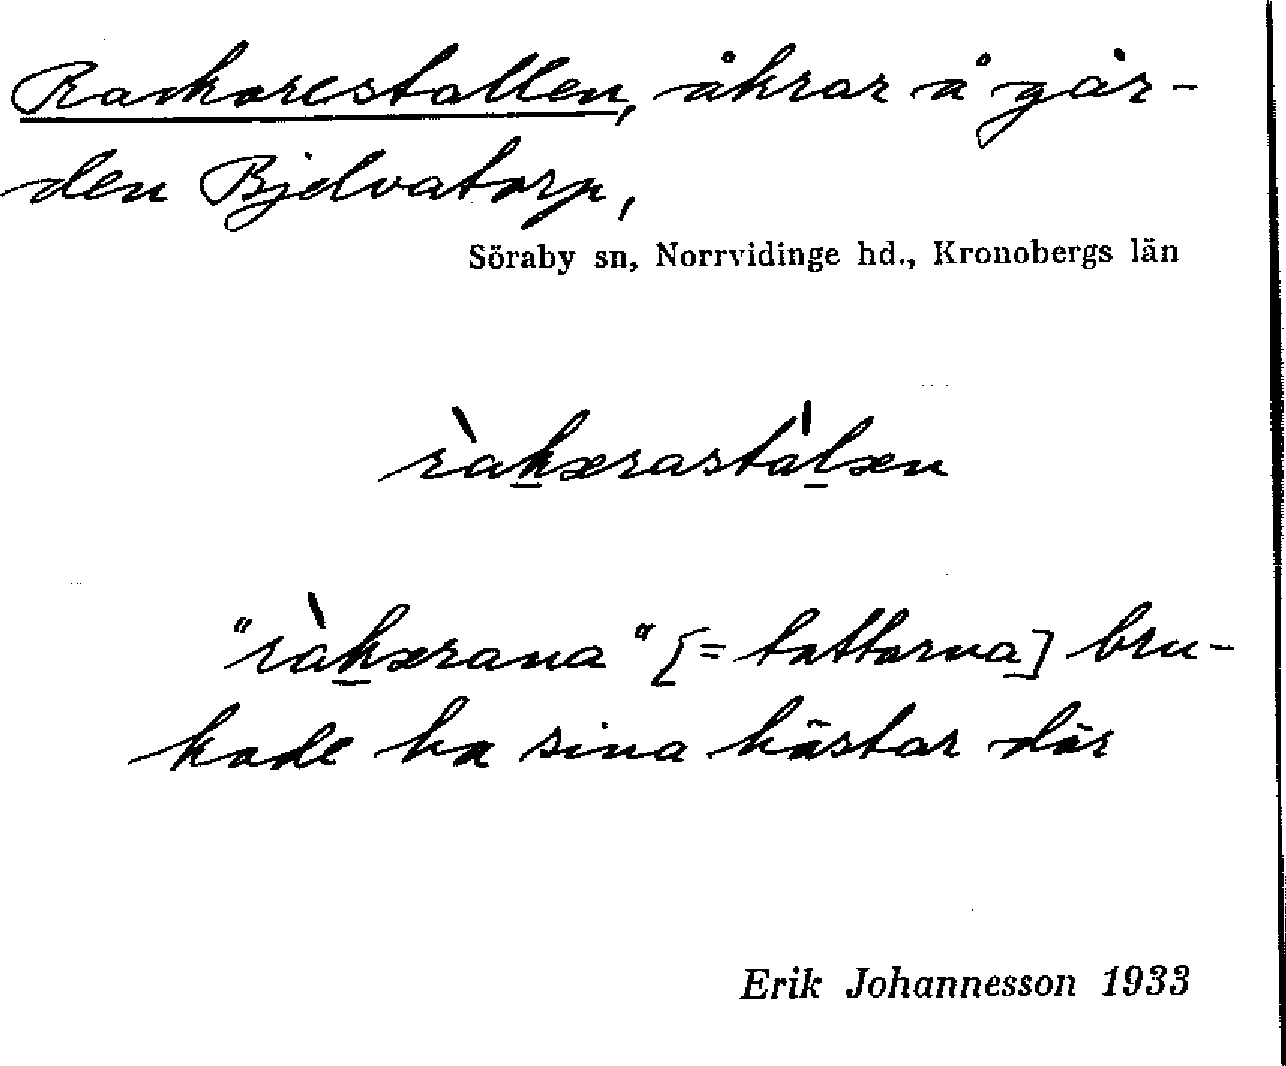 Rackarestallen, åkrar å går-
den Bjelvatorp,
Söraby sn, Norrvidinge hd., Kronobergs län
ràkærastàlæn
"ràkærana" [= tattarna] bru-
kade ha sina hästar där
Erik Johannesson 1933